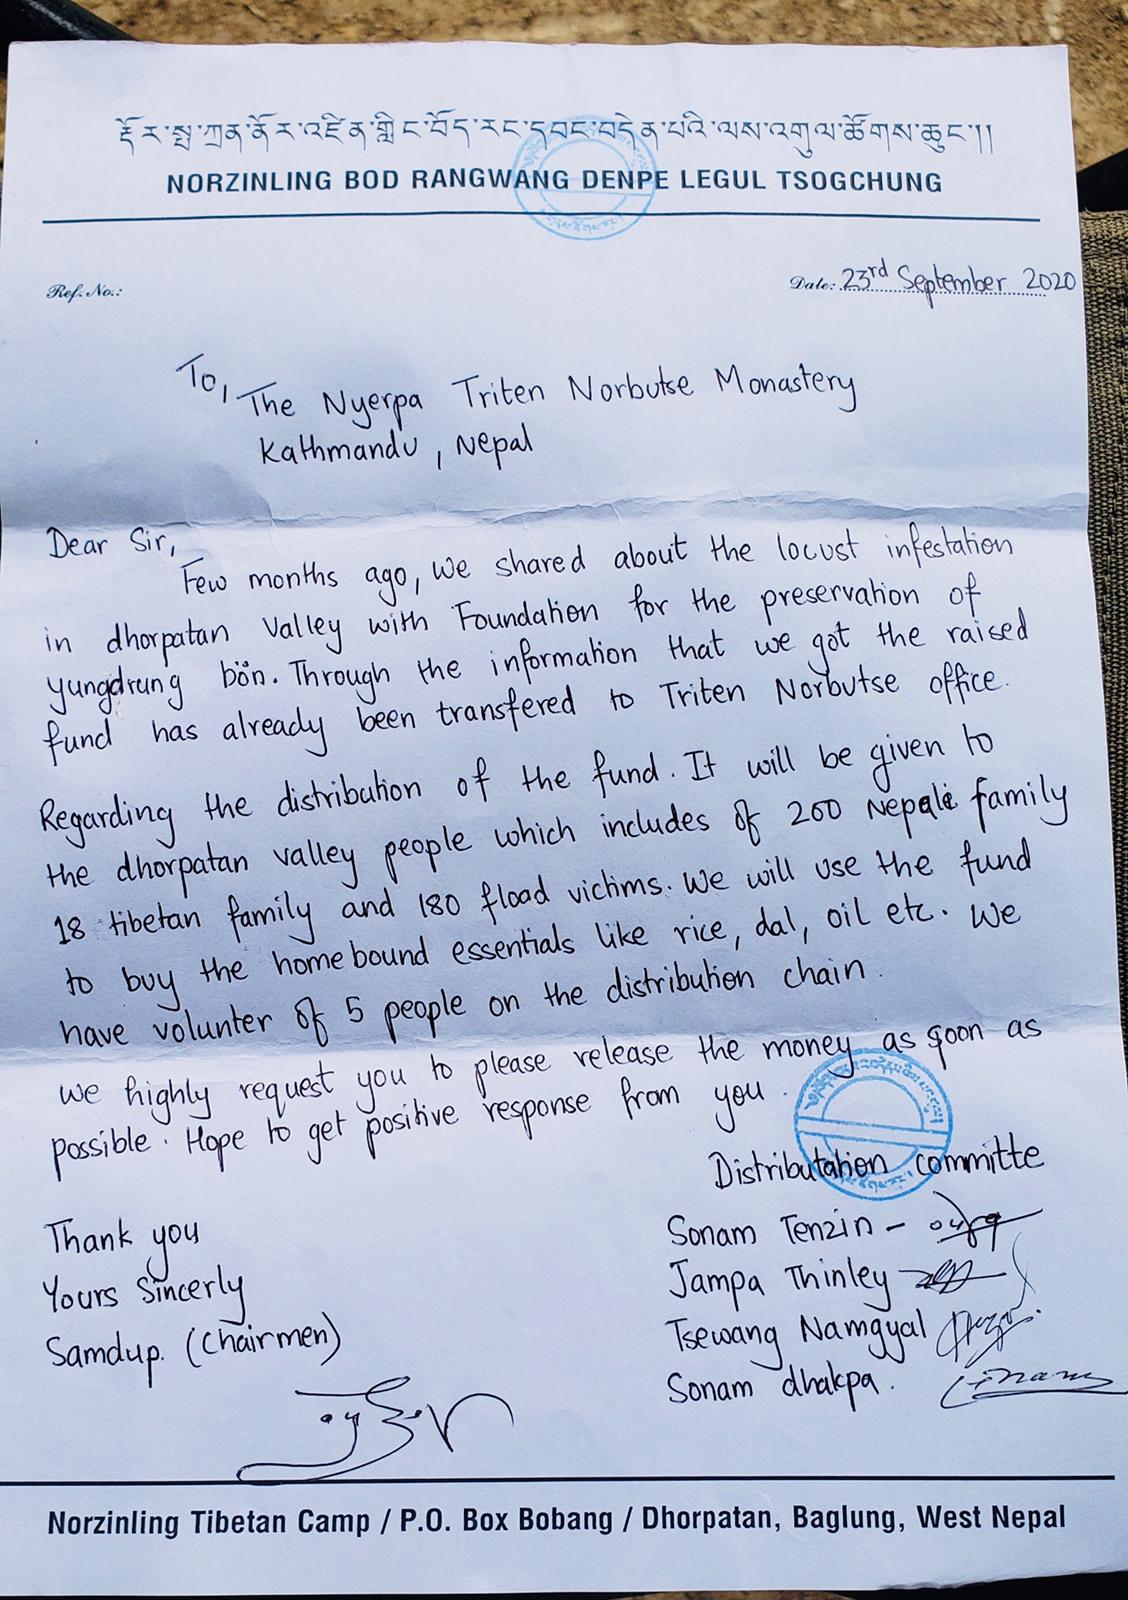 རྡོར་སྤ་ཀྲན་ནོར་འཛིན་གླིང་བོད་རང་དབང་བདེན་པའི་ལས་འགུལ་ཚོགས་ཆུང་།།
NORZINLING BOD RANGWANG DENPE LEGUL TSOGCHUNG
Ref. No.:
Date: 23rd September 2020
To,
The Nyerpa Triten Norbutse Monastery
Kathmandu, Nepal
Dear Sir,
Few months ago, we shared about the locust infestation
in dhorpatan Valley with Foundation for the preservation of
yungdrung bön. Through the information that we got the raised
fund has already been transfered to Triten Norbutse office.
Regarding the distribution of the fund. It will be given to
the dhorpatan valley people which includes of 200 Nepali family
18 tibetan family and 180 fload victims. We will use the fund
to buy the homebound essentials like rice, dal, oil etc. We
have volunter of 5 people on the distribution chain.
We highly request you to please release the money as soon as
possible. Hope to get positive response from you.
Distributation committe
Thank you
Yours Sincerly
Samdup. (Chairmen)
Sonam Tenzin -
Jampa Thinley
Tsewang Namgyal
Sonam dhakpa.
Norzinling Tibetan Camp / P.O. Box Bobang / Dhorpatan, Baglung, West Nepal